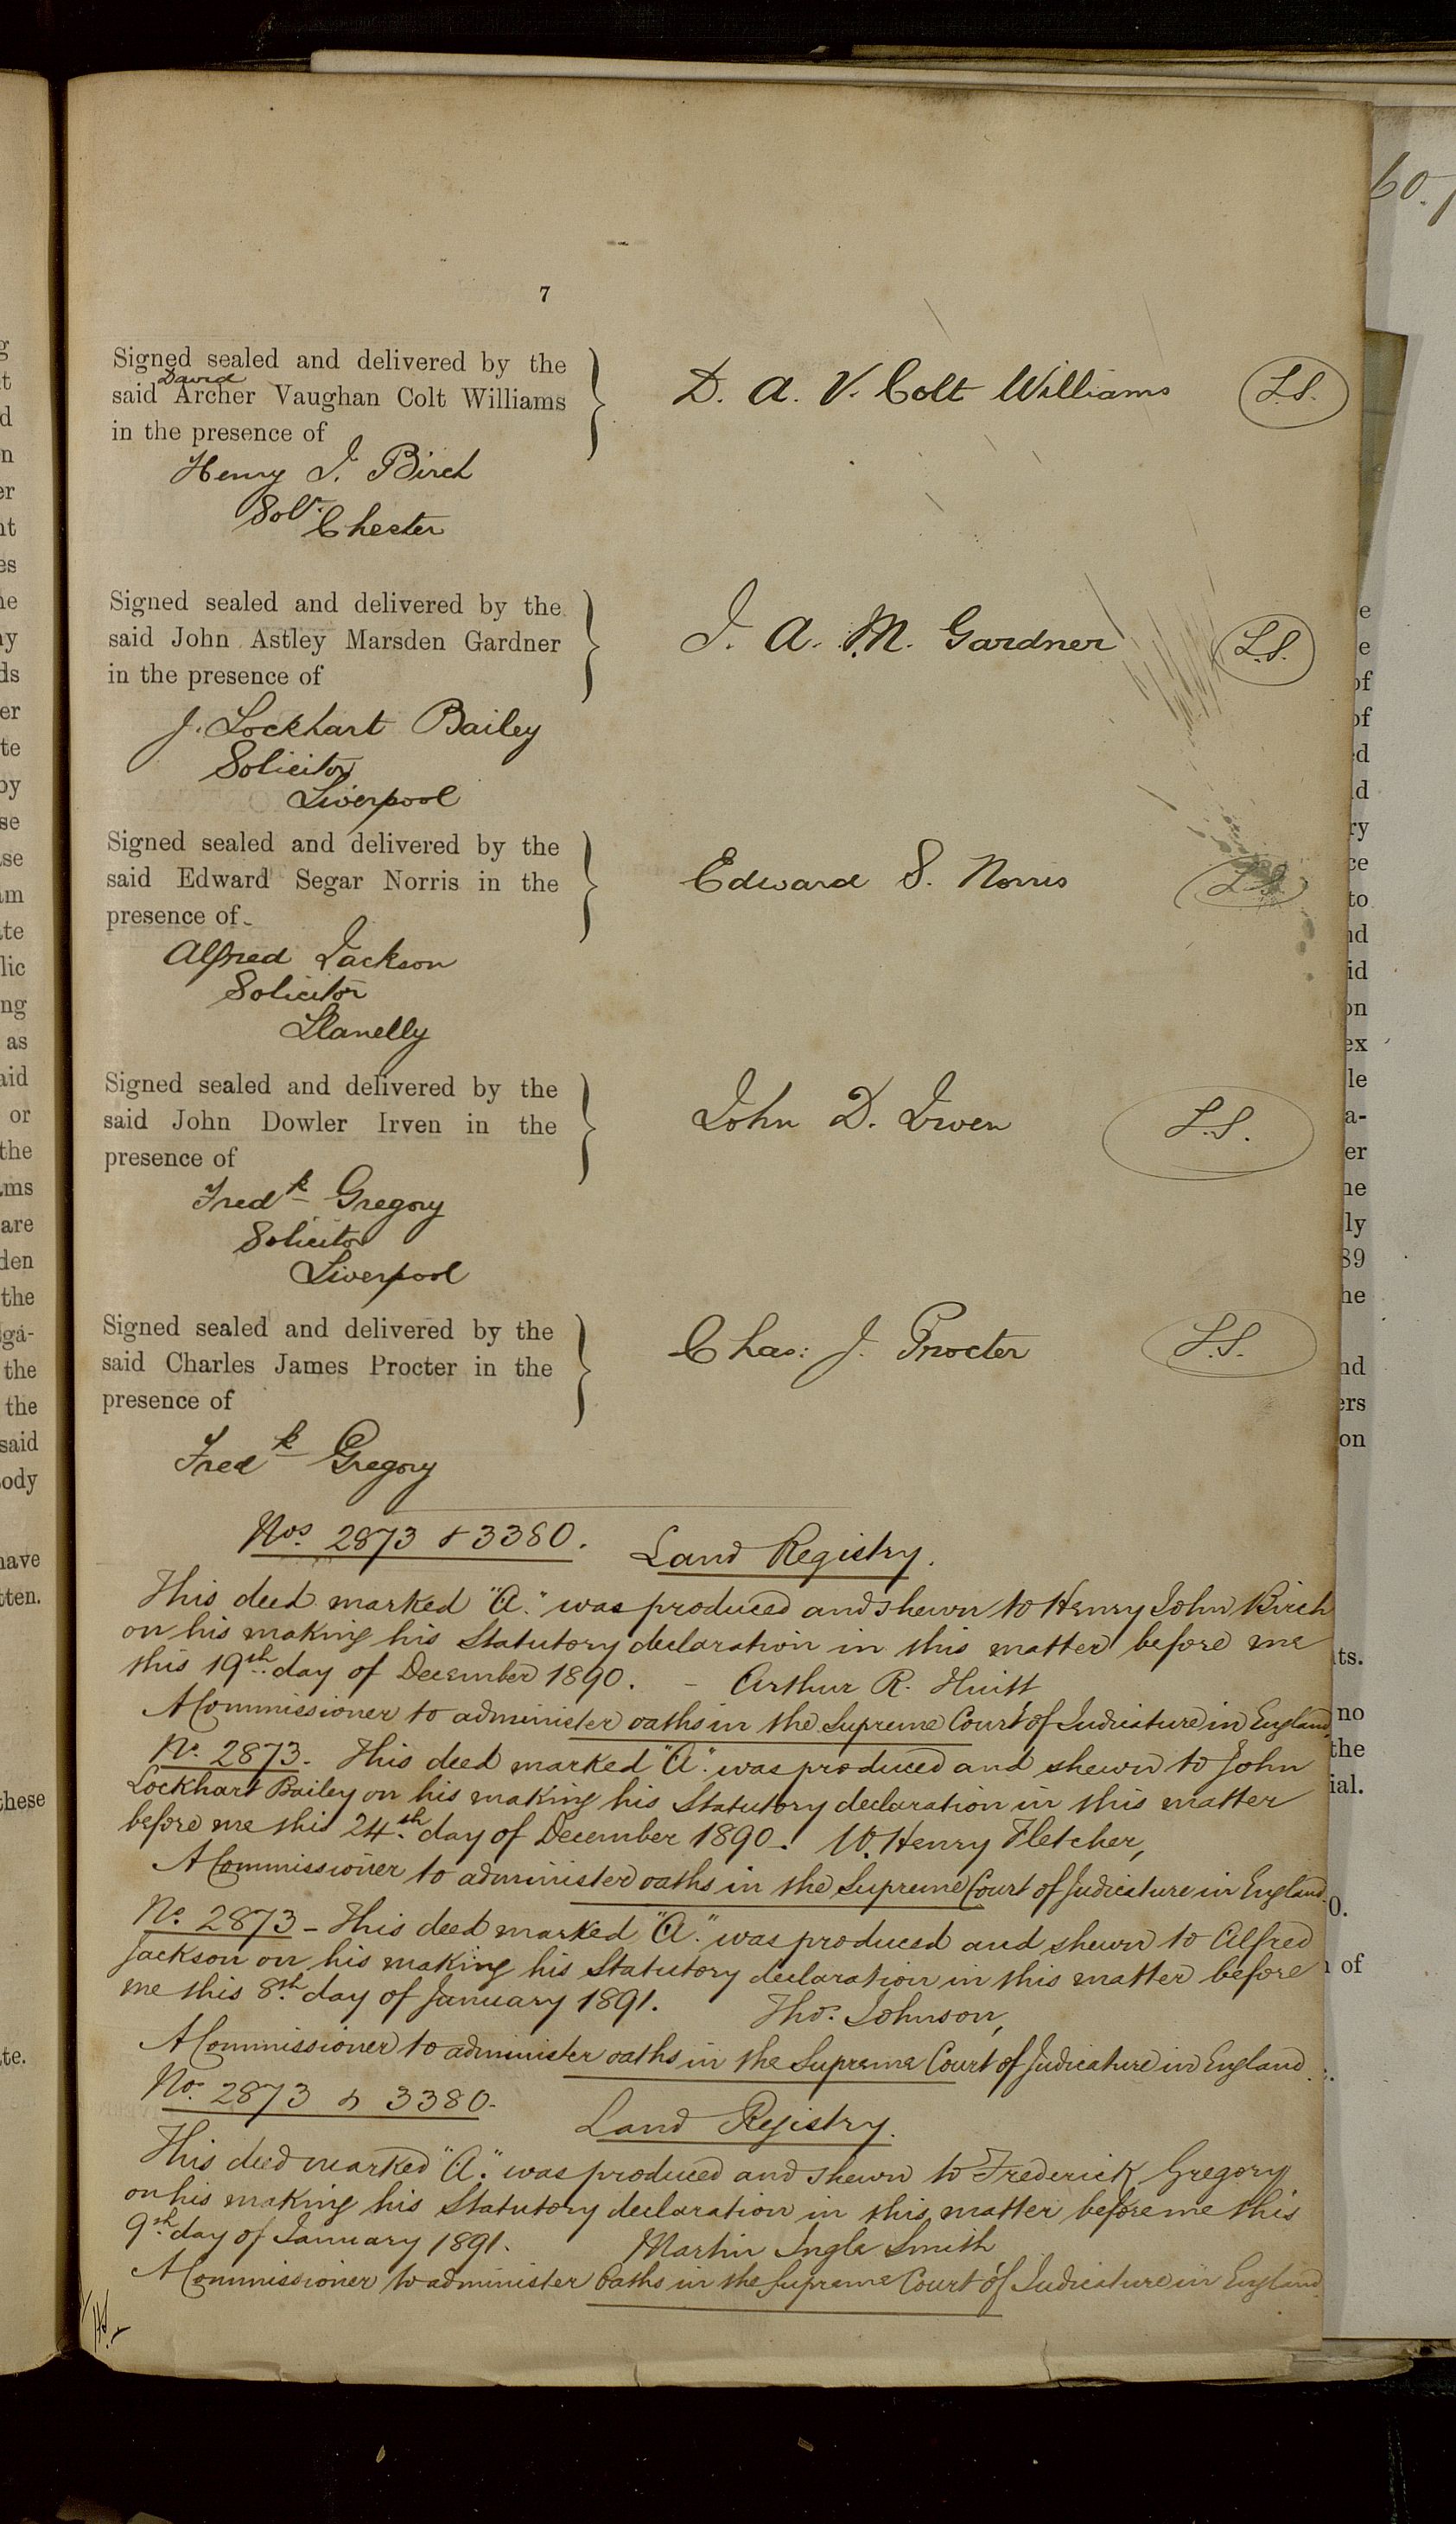 7
Signed sealed and delivered by the
David
said Archer Vaughan Colt Williams
in the presence of
D. A. V. Colt Williams L.S.
Henry J. Birch
Solr. Chester
Signed sealed and delivered by the
said John Astley Marsden Gardner
in the presence of
J. A. M. Gardner L.S.
J. Lockhart Bailey
Solicitor
Liverpool
Signed sealed and delivered by the
said Edward Segar Norris in the
presence of
Edward S. Norris L.S.
Alfred Jackson
Solicitor
Llanelly
Signed sealed and delivered by the
said John Dowler Irven in the
presence of
John D. Irven L.S.
Fredk Gregory
Solicitor
Liverpool
Signed sealed and delivered by the
said Charles James Procter in the
presence of
Chas: J. Procter L.S.
Fredk Gregory
Nos. 2873 & 3380. Land Registry.
This deed marked "A." was produced and shewn to Henry John Birch
on his making his Statutory declaration in this matter before me
this 19th. day of December 1890. - Arthur R.
A Commissioner to administer oaths in the Supreme Court of Judicature in England
No. 2873. This deed marked "A." was produced and shewn to John
Lockhart Bailey on his making his Statutory declaration in this matter
before me this 24th. day of December 1890. W. Henry Fletcher,
A Commissioner to administer oaths in the Supreme Court of Judicature in England
No. 2873 - This deed marked "A." was produced and shewn to Alfred
Jackson on his making his Statutory declaration in this matter before
me this 8th. day of January 1891. Thos. Johnson,
A Commissioner to administer oaths in the Supreme Court of Judicature in England.
No. 2873 & 3380. Land Registry.
This deed marked "A." was produced and shewn to Frederick Gregory
on his making his Statutory declaration in this matter before me this
9th. day of January 1891. Martin Ingle Smith
A Commissioner to administer Oaths in the Supreme Court of Judicature in England